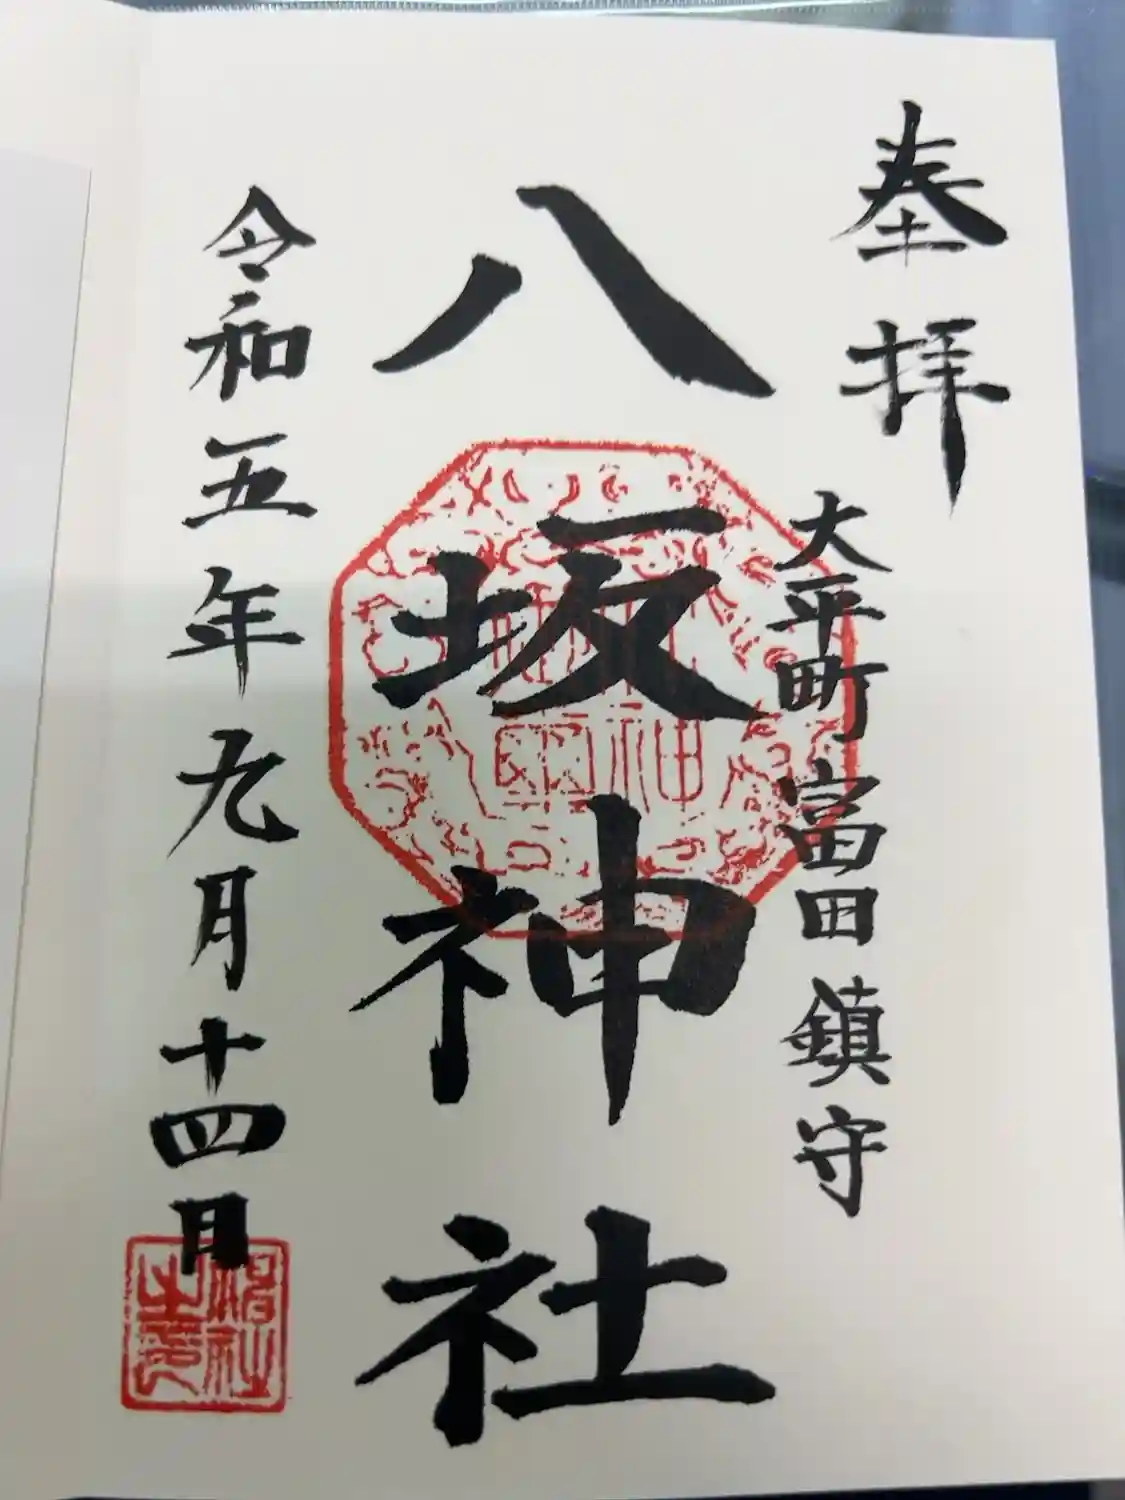 奉拝
大平町 富田 鎮守
八坂神社
令和五年九月十四日